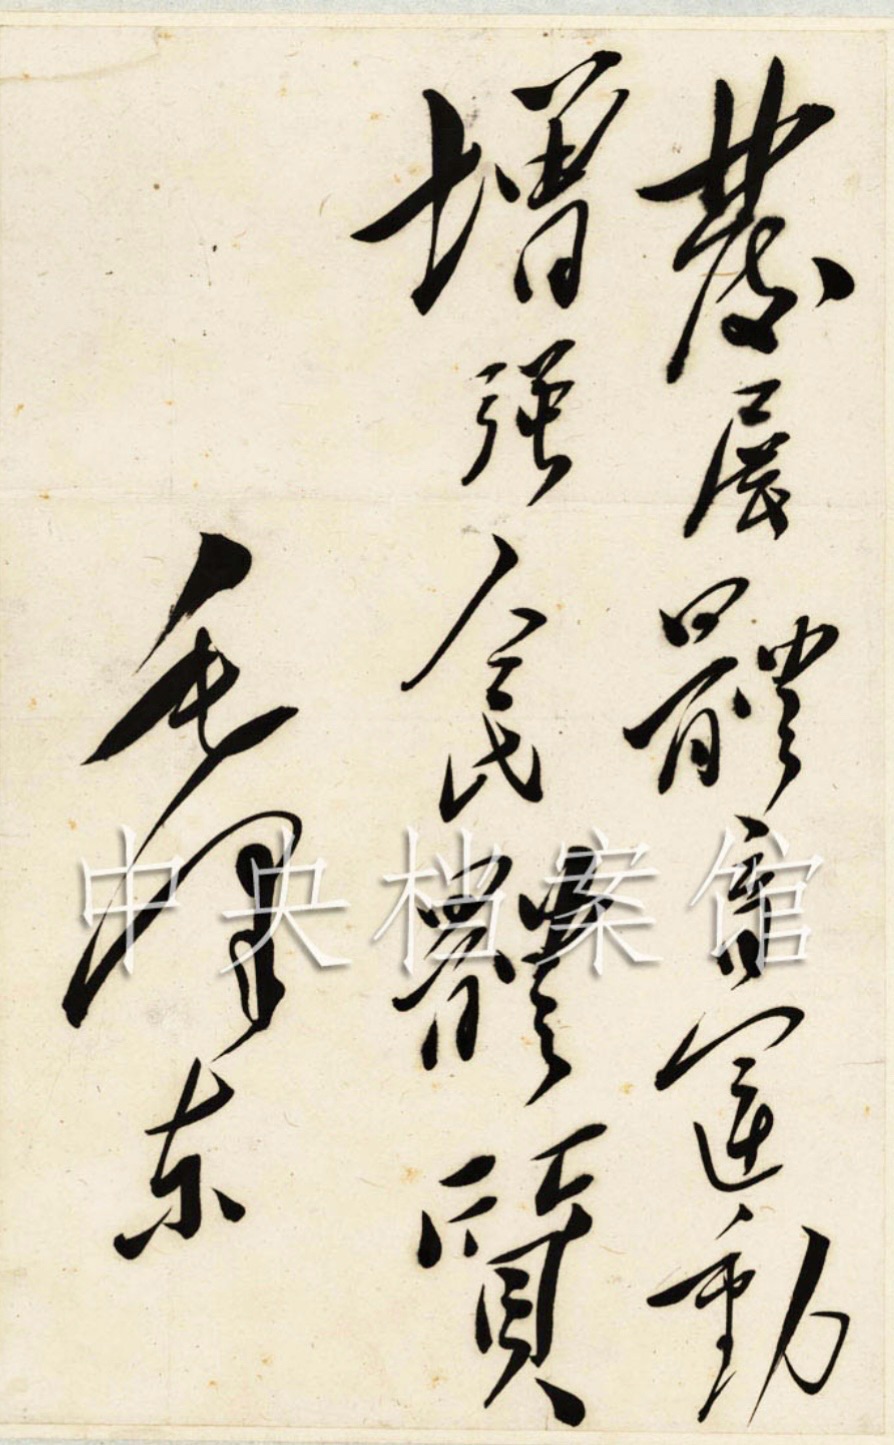 發展體育運動
增強人民體質
毛澤东
中央档案馆